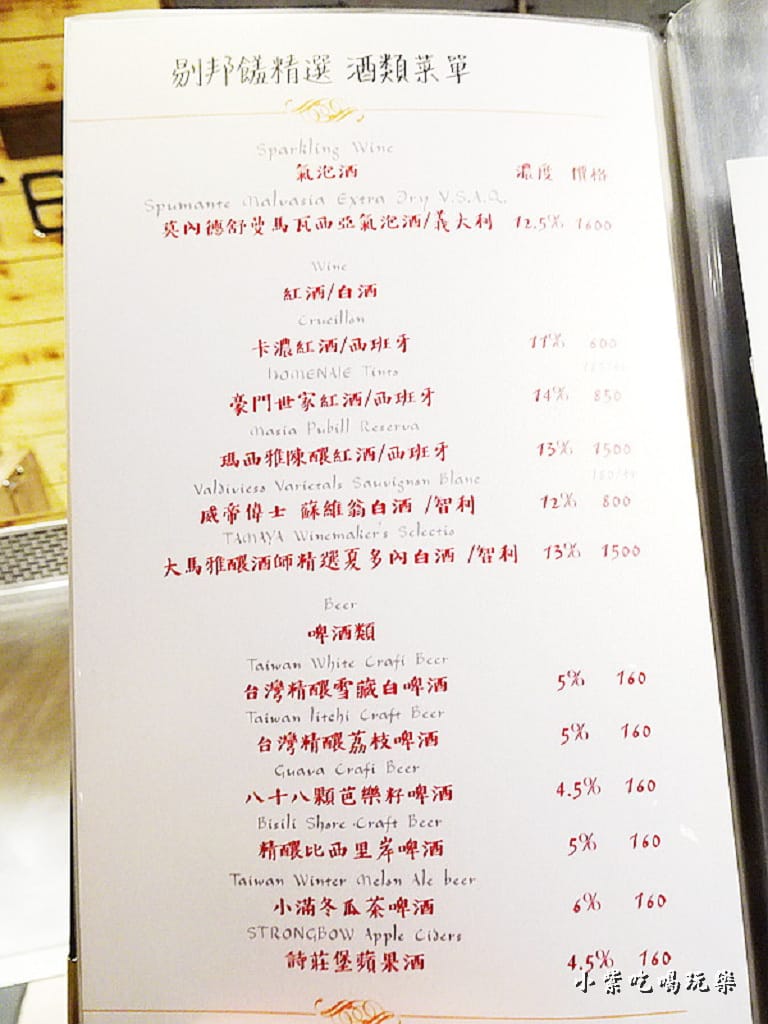 剔邦饈精選 酒類菜單
Sparkling Wine
氣泡酒 濃度 價格
Spumante Malvasia Extra Dry V.S.A.Q.
莫內德舒曼馬瓦西亞氣泡酒/義大利 12.5% 1600
Wine
紅酒/白酒
Crucillon
卡濃紅酒/西班牙 11% 600
HOMENAJE Tinto
豪門世家紅酒/西班牙 14% 850
Masia Pubill Reserva
瑪西雅陳釀紅酒/西班牙 13% 1500
Valdivieso Varietals Sauvignon Blanc
威帝偉士 蘇維翁白酒 /智利 12% 800
TAMAYA Winemaker's Selectio
大馬雅釀酒師精選夏多內白酒 /智利 13% 1500
Beer
啤酒類
Taiwan White Crafi Beer
台灣精釀雪藏白啤酒 5% 160
Taiwan litchi Craft Beer
台灣精釀荔枝啤酒 5% 160
Guava Crafi Beer
八十八顆芭樂籽啤酒 4.5% 160
Bisili Shore Craft Beer
精釀比西里岸啤酒 5% 160
Taiwan Winter Melon Ale beer
小滿冬瓜茶啤酒 6% 160
STRONGBOW Apple Ciders
詩莊堡蘋果酒 4.5% 160
小紫吃喝玩樂